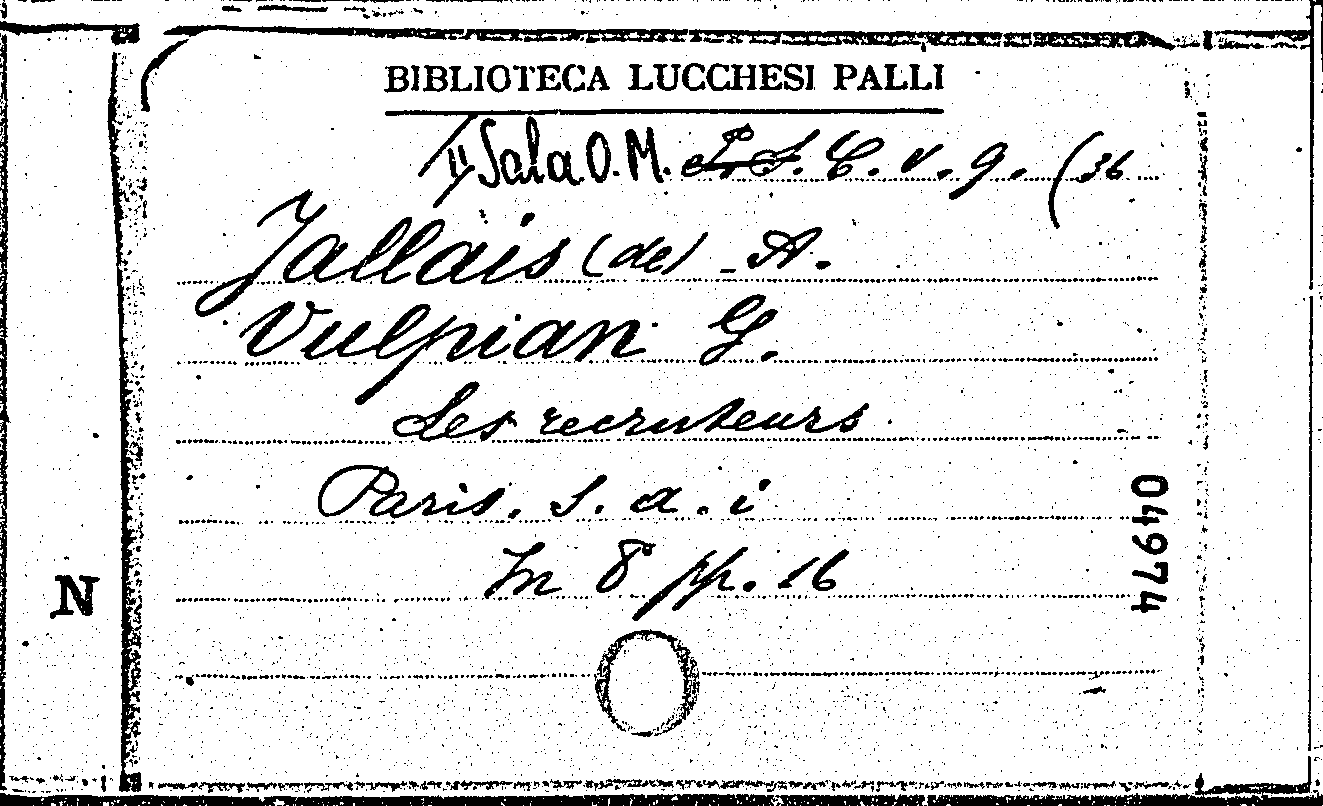 BIBLIOTECA LUCCHESI PALLI
Sala O. M. S. C. v. g. (36
Jallais (de) - A.
Vulpian G.
Les recruteurs
Paris. s. a. i
In 8° pp. 16
04974
N